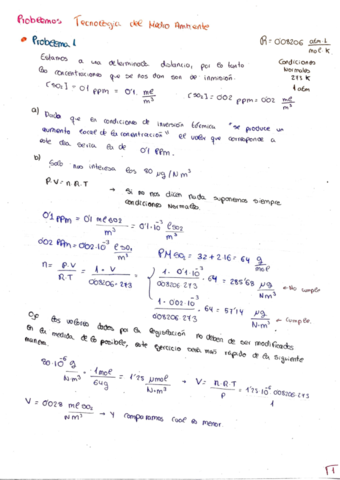 Problemas Tecnología del Medio Ambiente
R = 0'08206 atm·l / mol·K
• Problema 1
Condiciones Normales 273 K 1 atm
Estamos a una determinada distancia, por lo tanto
las concentraciones que se nos dan son de inmisión.
[SO2] = 0'1 ppm = 0'1 ml/m³ [SO2] = 0'02 ppm = 0'02 ml/m³
a) Dado que en condiciones de inversión térmica "se produce un
aumento local de la concentración" el valor que corresponde a
este día sería el de 0'1 ppm.
b) Solo nos interesa los 80 µg/Nm³
P·V = n·R·T → Si no nos dicen nada suponemos siempre
condiciones Normales.
0'1 ppm = 0'1 ml SO2 / m³ = 0'1·10⁻³ l SO2 / m³
0'02 ppm = 0'02·10⁻³ l SO2 / m³ PM SO2 = 32 + 2·16 = 64 g/mol
n = P·V / R·T = 1·V / 0'08206·273 =
1·0'1·10⁻³ / 0'08206·273 · 64 = 285'68 µg/Nm³ → No cumple
1·0'02·10⁻³ / 0'08206·273 · 64 = 57'14 µg/Nm³ → Cumple.
Los valores dados por la legislación no deben de ser modificados
en la medida de lo posible, este ejercicio será más rápido de la siguiente
manera.
80·10⁻⁶ g / N·m³ · 1 mol / 64 g = 1'25 µmol / N·m³ → V = n·R·T / P = 1'25·10⁻⁶·0'08206·273 / 1
V = 0'028 ml SO2 / Nm³ → Y comparamos cual es menor
1